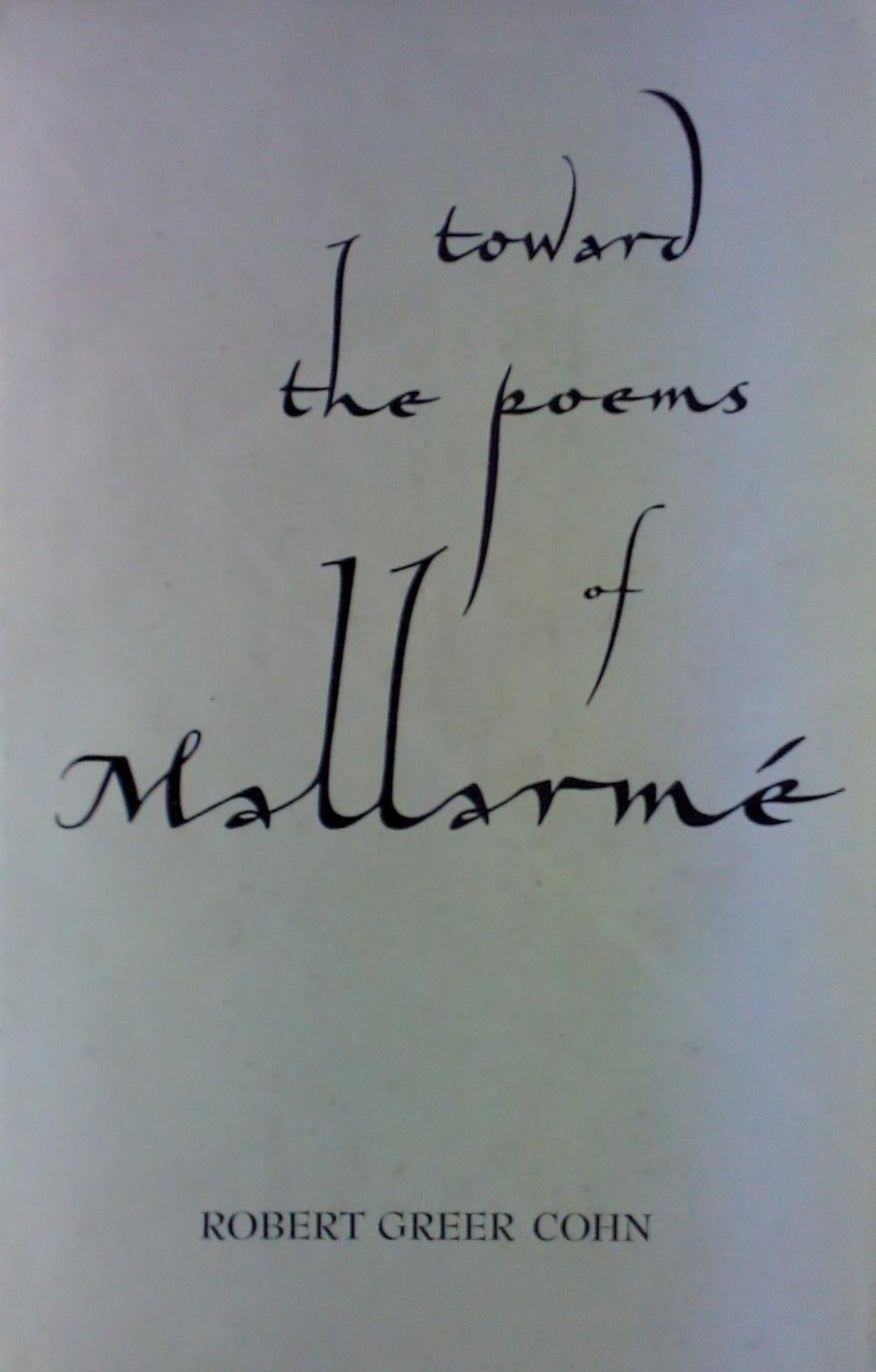 toward
the poems
of
Mallarmé
ROBERT GREER COHN